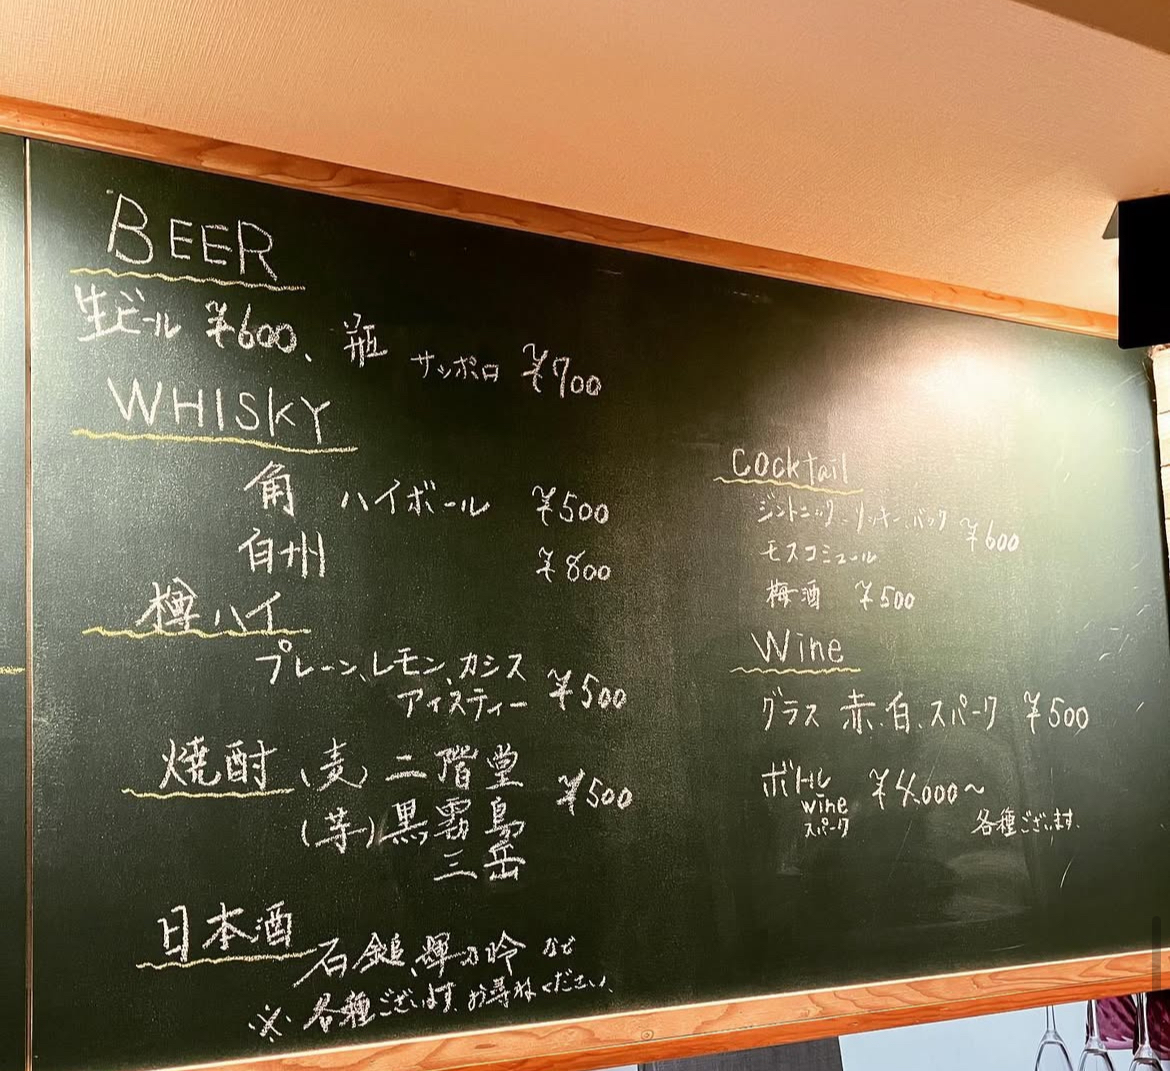 BEER
生ビール ¥600、瓶 サッポロ ¥700
WHISKY
角 ハイボール ¥500
白州 ¥800
樽ハイ
プレーン、レモン、カシス
アイスティー ¥500
焼酎 (麦) 二階堂 ¥500
(芋) 黒霧島
三岳
日本酒
石鎚、輝の吟 など
※ 各種ございます。お尋ねください、
Cocktail
ジントニック、リッキー、バック ¥600
モスコミュール
梅酒 ¥500
Wine
グラス 赤、白、スパーク ¥500
ボトル ¥4.000〜
wine
スパーク
各種ございます。